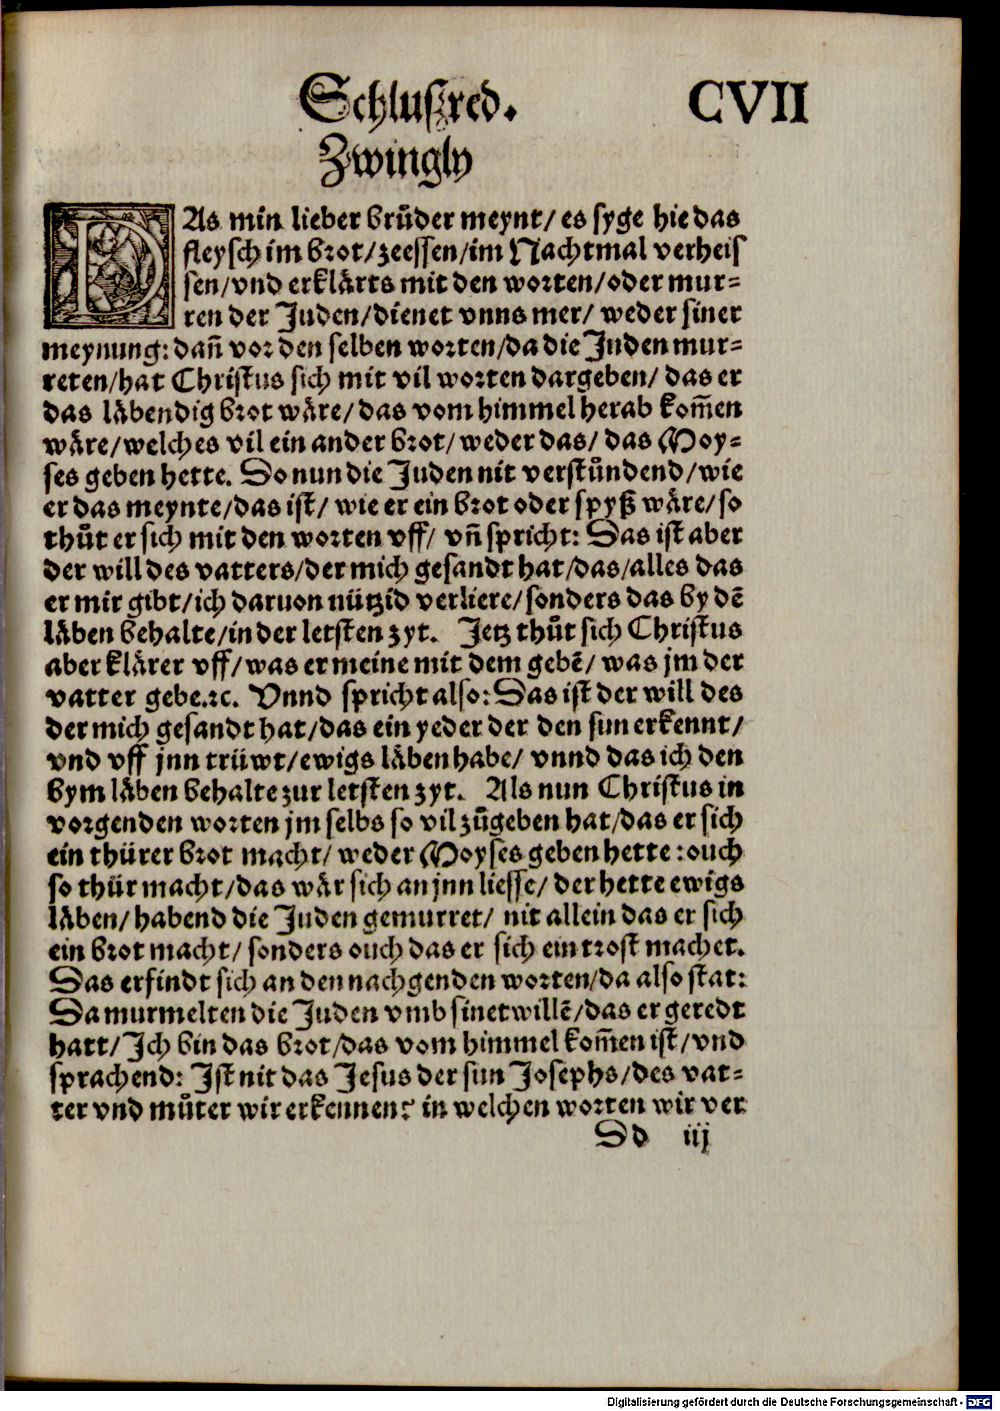 Schluszred. CVII
Zwingly
DAs min lieber bruͤder meynt/ es syge hie das
fleysch im brot/zeessen/im Nachtmal verheis
sen/vnd erklaͤrts mit den worten/oder mur-
ren der Juden/dienet vnns mer/ weder siner
meynung: dañ vor den selben worten/da die Juden mur-
reten/hat Christus sich mit vil worten dargeben/ das er
das laͤbendig brot waͤre/das vom himmel herab kom̃en
waͤre/welches vil ein ander brot/weder das/ das Moy-
ses geben hette. So nun die Juden nit verstuͤndend/wie
er das meynte/das ist/ wie er ein brot oder spyß waͤre/so
thuͦt er sich mit den worten vff/ vñ spricht: Das ist aber
der will des vatters/der mich gesandt hat/das/alles das
er mir gibt/ich daruon nützid verliere/sonders das by dẽ
laͤben behalte/in der letsten zyt. Jetz thuͦt sich Christus
aber klaͤrer vff/was er meine mit dem gebẽ/ was jm der
vatter gebe.ꝛc. Vnnd spricht also: Das ist der will des
der mich gesandt hat/das ein yeder der den sun erkennt/
vnd vff jnn trüwt/ewigs laͤben habe/ vnnd das ich den
bym laͤben behalte zur letsten zyt. Als nun Christus in
vorgenden worten jm selbs so vil zuͦgeben hat/das er sich
ein thürer brot macht/ weder Moyses geben hette: ouch
so thür macht/das waͤr sich an jnn liesse/ der hette ewigs
laͤben/ habend die Juden gemurret/ nit allein das er sich
ein brot macht/ sonders ouch das er sich ein trost machet.
Das erfindt sich an den nachgenden worten/da also stat:
Da murmelten die Juden vmb sinet willẽ/das er geredt
hatt/Jch bin das brot/das vom himmel kom̃en ist/vnd
sprachend: Jst nit das Jesus der sun Josephs/des vat-
ter vnd muͦter wir erkennen? in welchen worten wir ver
Dd iij
Digitalisierung gefördert durch die Deutsche Forschungsgemeinschaft - DFG